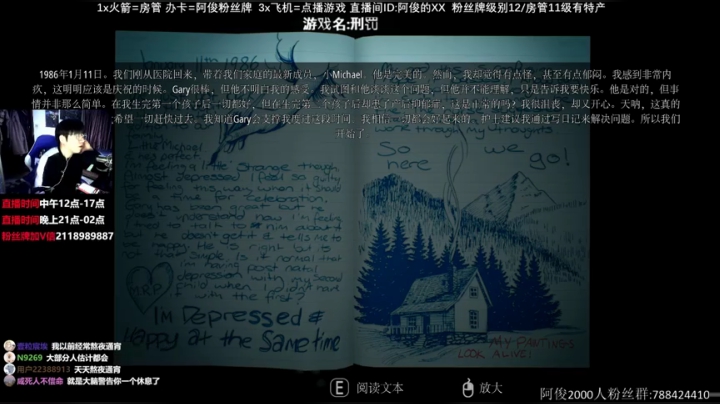 1x火箭=房管 办卡=阿俊粉丝牌 3x飞机=点播游戏 直播间ID:阿俊的XX 粉丝牌级别12/房管11级有特产
游戏名:刑罚
1986年1月11日。我们刚从医院回来，带着我们家庭的最新成员，小Michael。他是完美的。然而，我却觉得有点怪，甚至有点郁闷。我感到非常内
疚，这明明应该是庆祝的时候。Gary很棒，但他不明白我的感受。我试图和他谈谈这个问题，但他并不能理解，只是告诉我要快乐。他是对的，但事
情并非那么简单。在我生完第一个孩子后一切都好，但在生完第二个孩子后却患了产后抑郁症，这是正常的吗？我很沮丧，却又开心。天呐，这真的
希望一切赶快过去。我知道Gary会支持我度过这段时间。我相信一切都会好起来的。护士建议我通过写日记来解决问题。所以我们
开始了
Little Michael
He's perfect
I'm feeling a little strange though
almost depressed I feel so guilty
for feeling this way when it should
be a time for celebration.
understand how I'm feeling
I tried to talk to him about it
he doesn't get it & tells me to
be happy. He's right but is
not that simple. Is it normal that
I'm having post natal
depression with my second
child when I didn't have
it with the first?
H.R.P
I'm Depressed &
Happy at the Same time
work through my thoughts
So we go!
here
MY PAINTINGS
LOOK ALIVE!
直播时间中午12点-17点
直播时间晚上21点-02点
粉丝牌加V信2118989887
我以前经常熬夜通宵
N9269 大部分人估计都会
用户22388913 天天熬夜通宵
咸死人不偿命 就是大脑警告你一个休息了
E 阅读文本 放大
阿俊2000人粉丝群:788424410